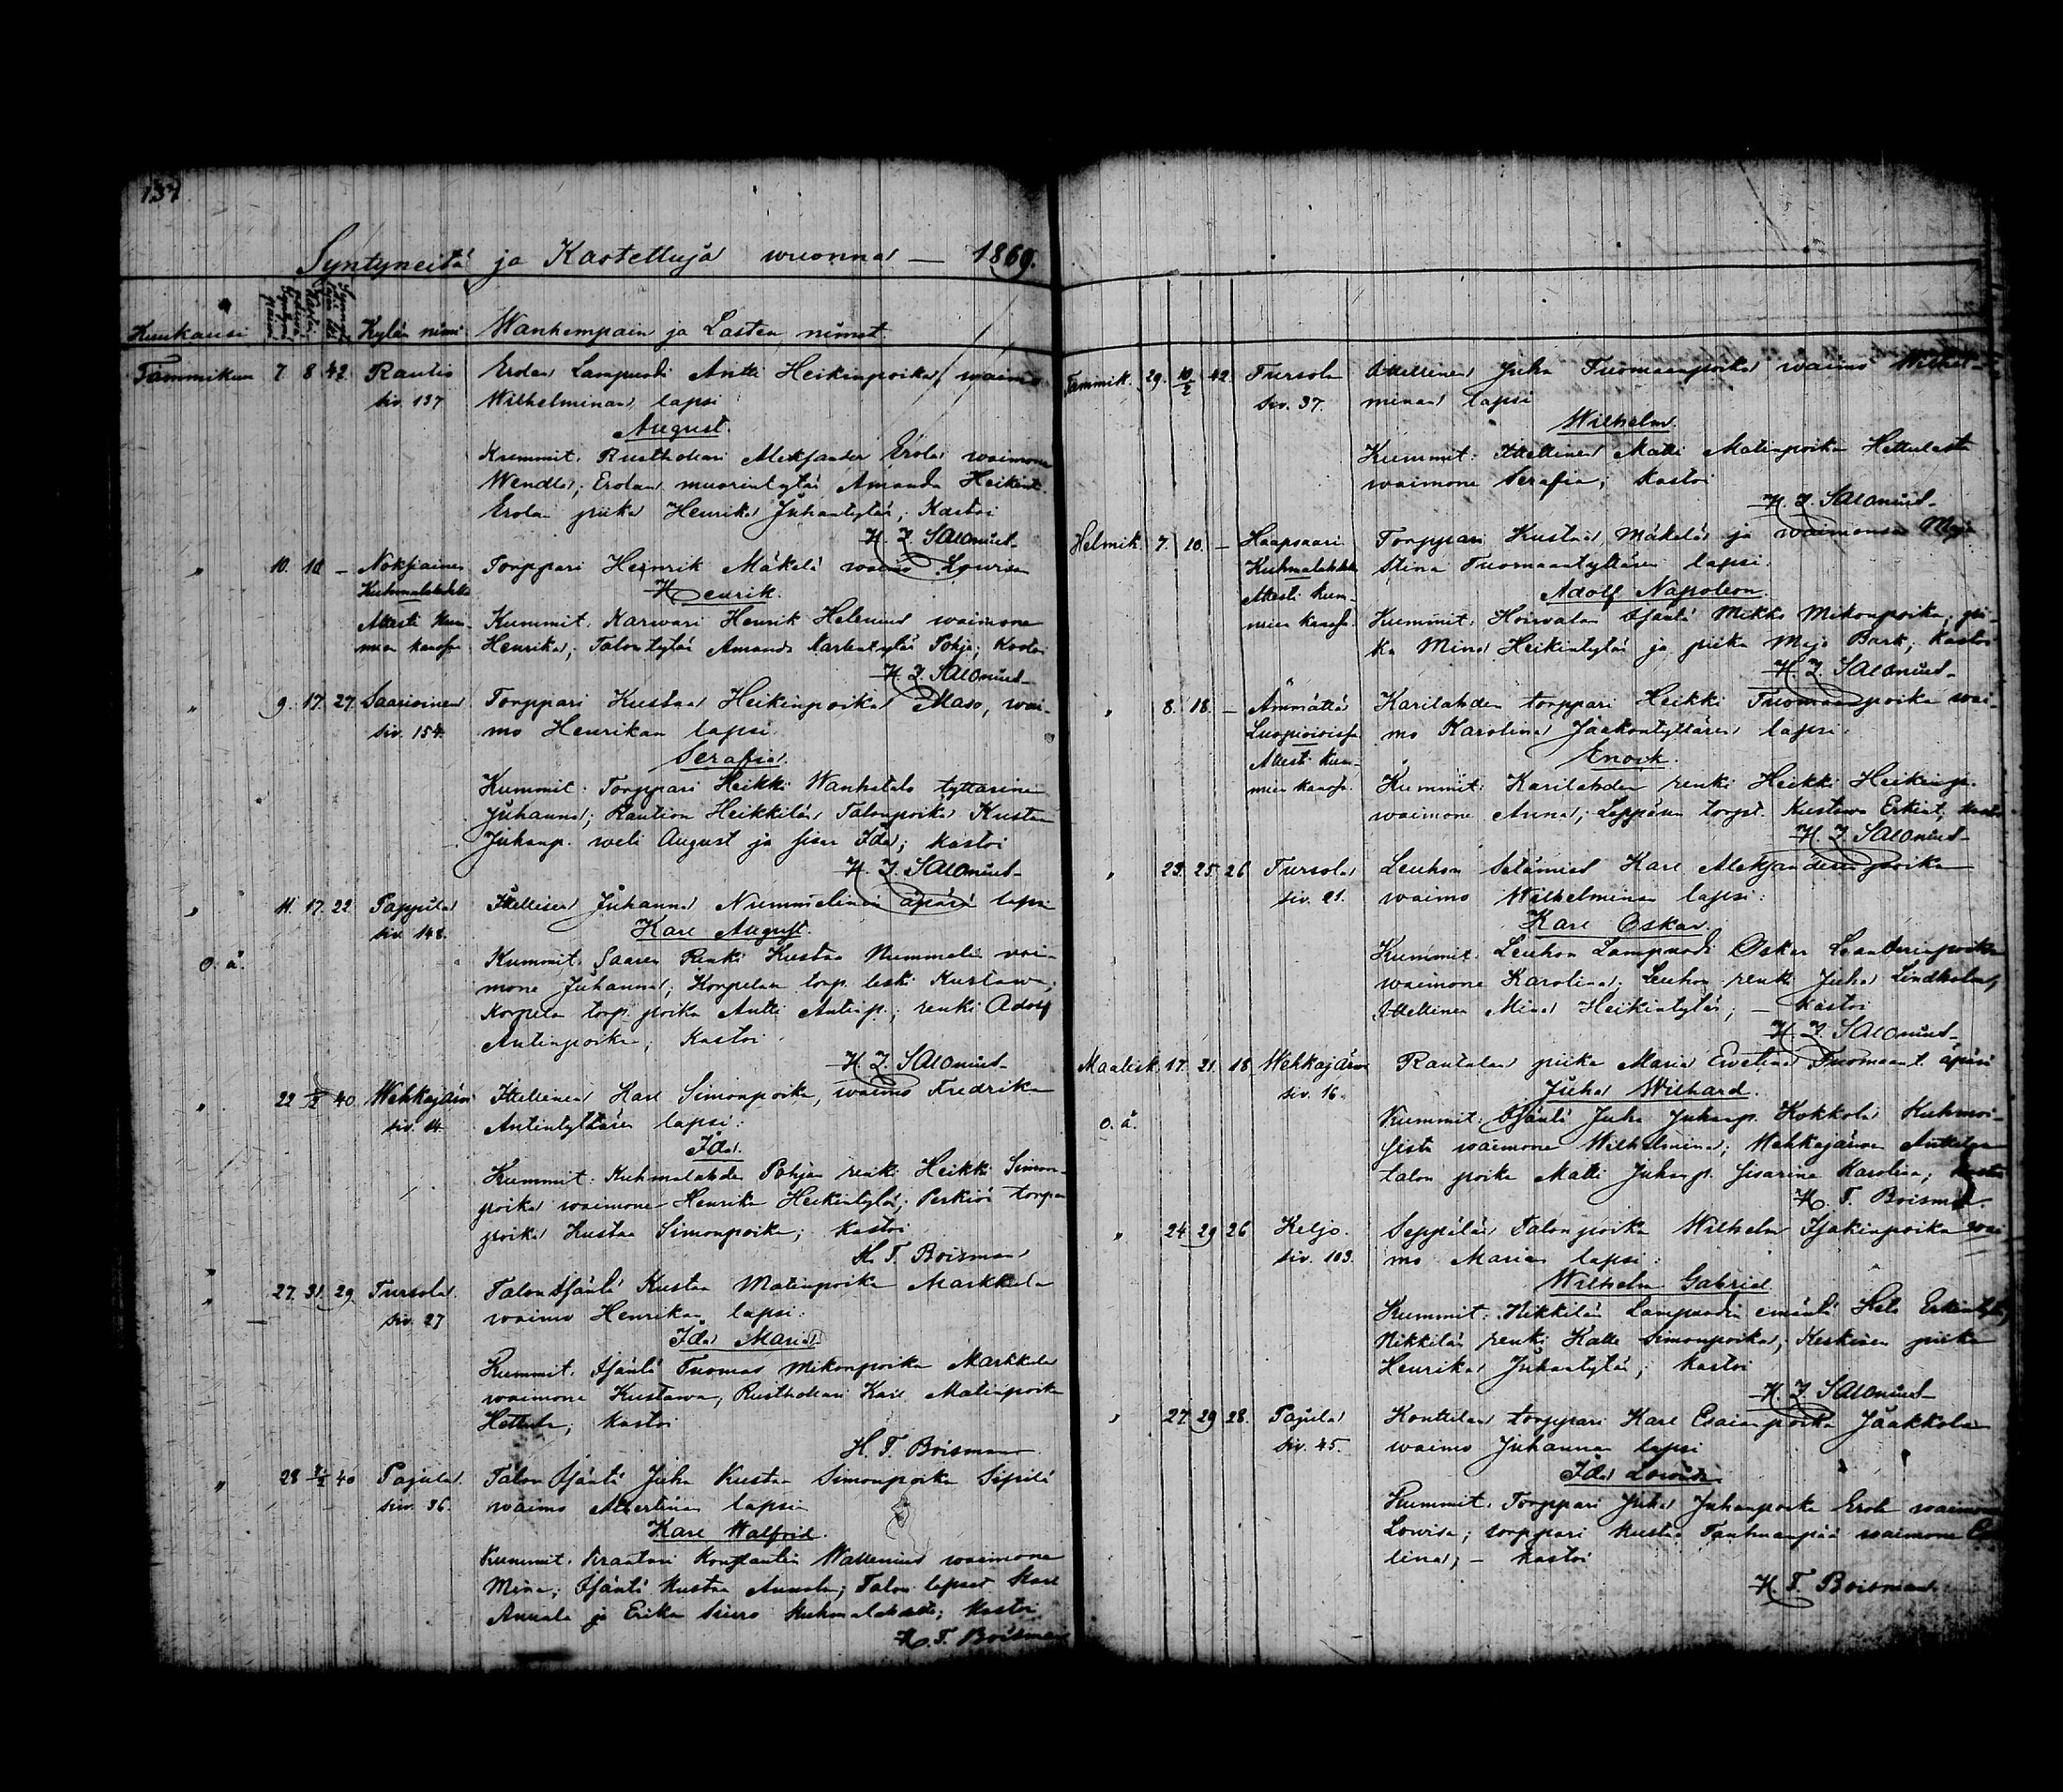 137
Syntyneitä ja Kastettuja wuonna — 1869.
Kuukausi Kylän nimi Wanhempain ja Lasten nimet.
Tammikuu 7. 8. 42. Rautio Erolan Lampuodi Antti Heikinpoika, waimo
siv. 137 Wilhelminan lapsi
August.
Kummit: Rusthollari Aleksander Erola waimone
Wendla; Erolan muorintytär Amanda Heikint.
Erolan piika Henrika Juhantytär; Kastoi
H. J. Salonius
" 10. – Noksiainen Torppari Heinrik Mäkelä waimo Lowisa
Kuhmalahdelta Henrik.
Attesti kum- Kummit: Karwari Henrik Helenius waimone
mien kanssa Henrika; Talontytär Amanda Pohja; Kastoi
H. J. Salonius
" 9. 17. 27. Saarioinen Torppari Kustaa Heikinpoika Maso, wai-
siv. 154. mo Henrikan lapsi.
Serafia.
Kummit: Torppari Heikki Wanhatalo tyttärine
Juhanna; Raution Heikkilän Talonpoika Kustaa
Juhanp. weli August ja sisar Ida; kastoi
H. J. Salonius
" 11. 17. 22. Pappila Itellisen Juhanna Nummelinin äpärä lapsi
siv. 148. Karl August.
O. ä. Kummit: Saaren Renki Kustaa Nummelin wai-
mone Juhanna; Korpelan torp. leski Kustawa;
Korpela torp. poika Antti Antinp.; renki Adolf
Antinpoika; Kastoi
H. J. Salonius
" 22 40 Wehkajärvi Itellinen Karl Simonpoika, waimo Fredrika
siv. 14. Antintyttären lapsi:
Ida.
Kummit: Kuhmalahden Pohjan renki Heikki Simon-
poika waimone Henrika Heikintytär; Perkiön torpan
poika Kustaa Simonpoika; kastoi
H. T. Boisman
" 27. 31. 29. Tursola Talon Isäntä Kustaa Matinpoika Markkula
siv. 27 waimo Henrikan lapsi:
Ida Maria
Kummit: Isäntä Tuomas Mikonpoika Markkula
waimone Kustawa, Rusthollari Karl Matinpoika
Hettula; kastoi
H. T. Boisman
" 28 40 Pajula. Talon Isäntä Juha Kustaa Simonpoika Sipilä
siv. 36. waimo Albertinan lapsi
Karl Walfrid.
Kummit: Kraatari Konstantin Wallenius waimone
Mina; Isäntä Kustaa Annala; Talon lapset Karl
Annala ja Erika Siuro Kuhmalahdelta; Kastoi
H. T. Boisman
Tammik. 29. 10/2 42. Tursola Itellinen Juha Tuomaanpoika waimo Wilhel-
siv. 37. minan lapsi
Wilhelm.
Kummit: Itellinen Matti Matinpoika Hettulasta
waimone Serafia; Kastoi
H. J. Salonius
Helmik. 7. 10. – Haapsaari Torppari Kustaa Mäkelä ja waimonsa Maja
Kuhmalahdelta Stina Tuomaantyttären lapsi:
Attesti kum- Adolf Napoleon.
mien kanssa. Kummit: Isäntä Mikko Mikonpoika, pii-
ka Mina Heikintytär ja piika Maja Bark; kastoi
H. J. Salonius
" 8. 18. – Ämmättä Karilahden torppari Heikki Tuomaanpoika wai-
Luopioisissa mo Karolina Jaakontyttären lapsi:
Attesti kum- Enock.
mien kanssa. Kummit: Karilahden renki Heikki Heikinp.
waimone Anna; Leppäsen torpt. Kustawa Erkint;
H. J. Salonius
" 23. 25. 26 Tursola Leuhun Karl Aleksanderinpoika
siv. 21. waimo Wilhelminan lapsi:
Karl Oskar.
Kummit: Leuhun Lampuodi Oskar
waimone Karolina; Leuhun renki Juha Lindholm;
Itellinen Mina Heikintytär; – Kastoi
H. J. Salonius
Maalisk. 17. 21. 18. Wehkajärvi Rautalan piika Maria Ewelina Tuomaant. äpärä
siv. 16. Juha Wilhard.
O. ä. Kummit: Isäntä Juha Juhanp. Kokkola Kuhmoi-
sista waimone Wilhelmina; Wehkajärven Anttilan
talon poika Matti Juhanp. sisarine Karolina;
H. T. Boisman
" 24. 29 26 Keljo. Seppälän Talonpoika Wilhelm Isakinpoika wai-
siv. 103. mo Marian lapsi:
Wilhelm Gabriel.
Kummit: Nikkilän Lampuodin emäntä
Nikkilän renki Kalle Simonpoika; Keskisen piika
Henrika Juhantytär; kastoi
H. J. Salonius
" 27. 29 28. Pajula Konttilan torppari Karl Esaianpoika Jaakkola
siv. 45. waimo Juhannan lapsi
Ida Lowisa
Kummit: Torppari Juha Juhanpoika Erola waimone
Lowisa; torppari Kustaa Tanhuanpää waimone
lina; – kastoi
H. T. Boisman